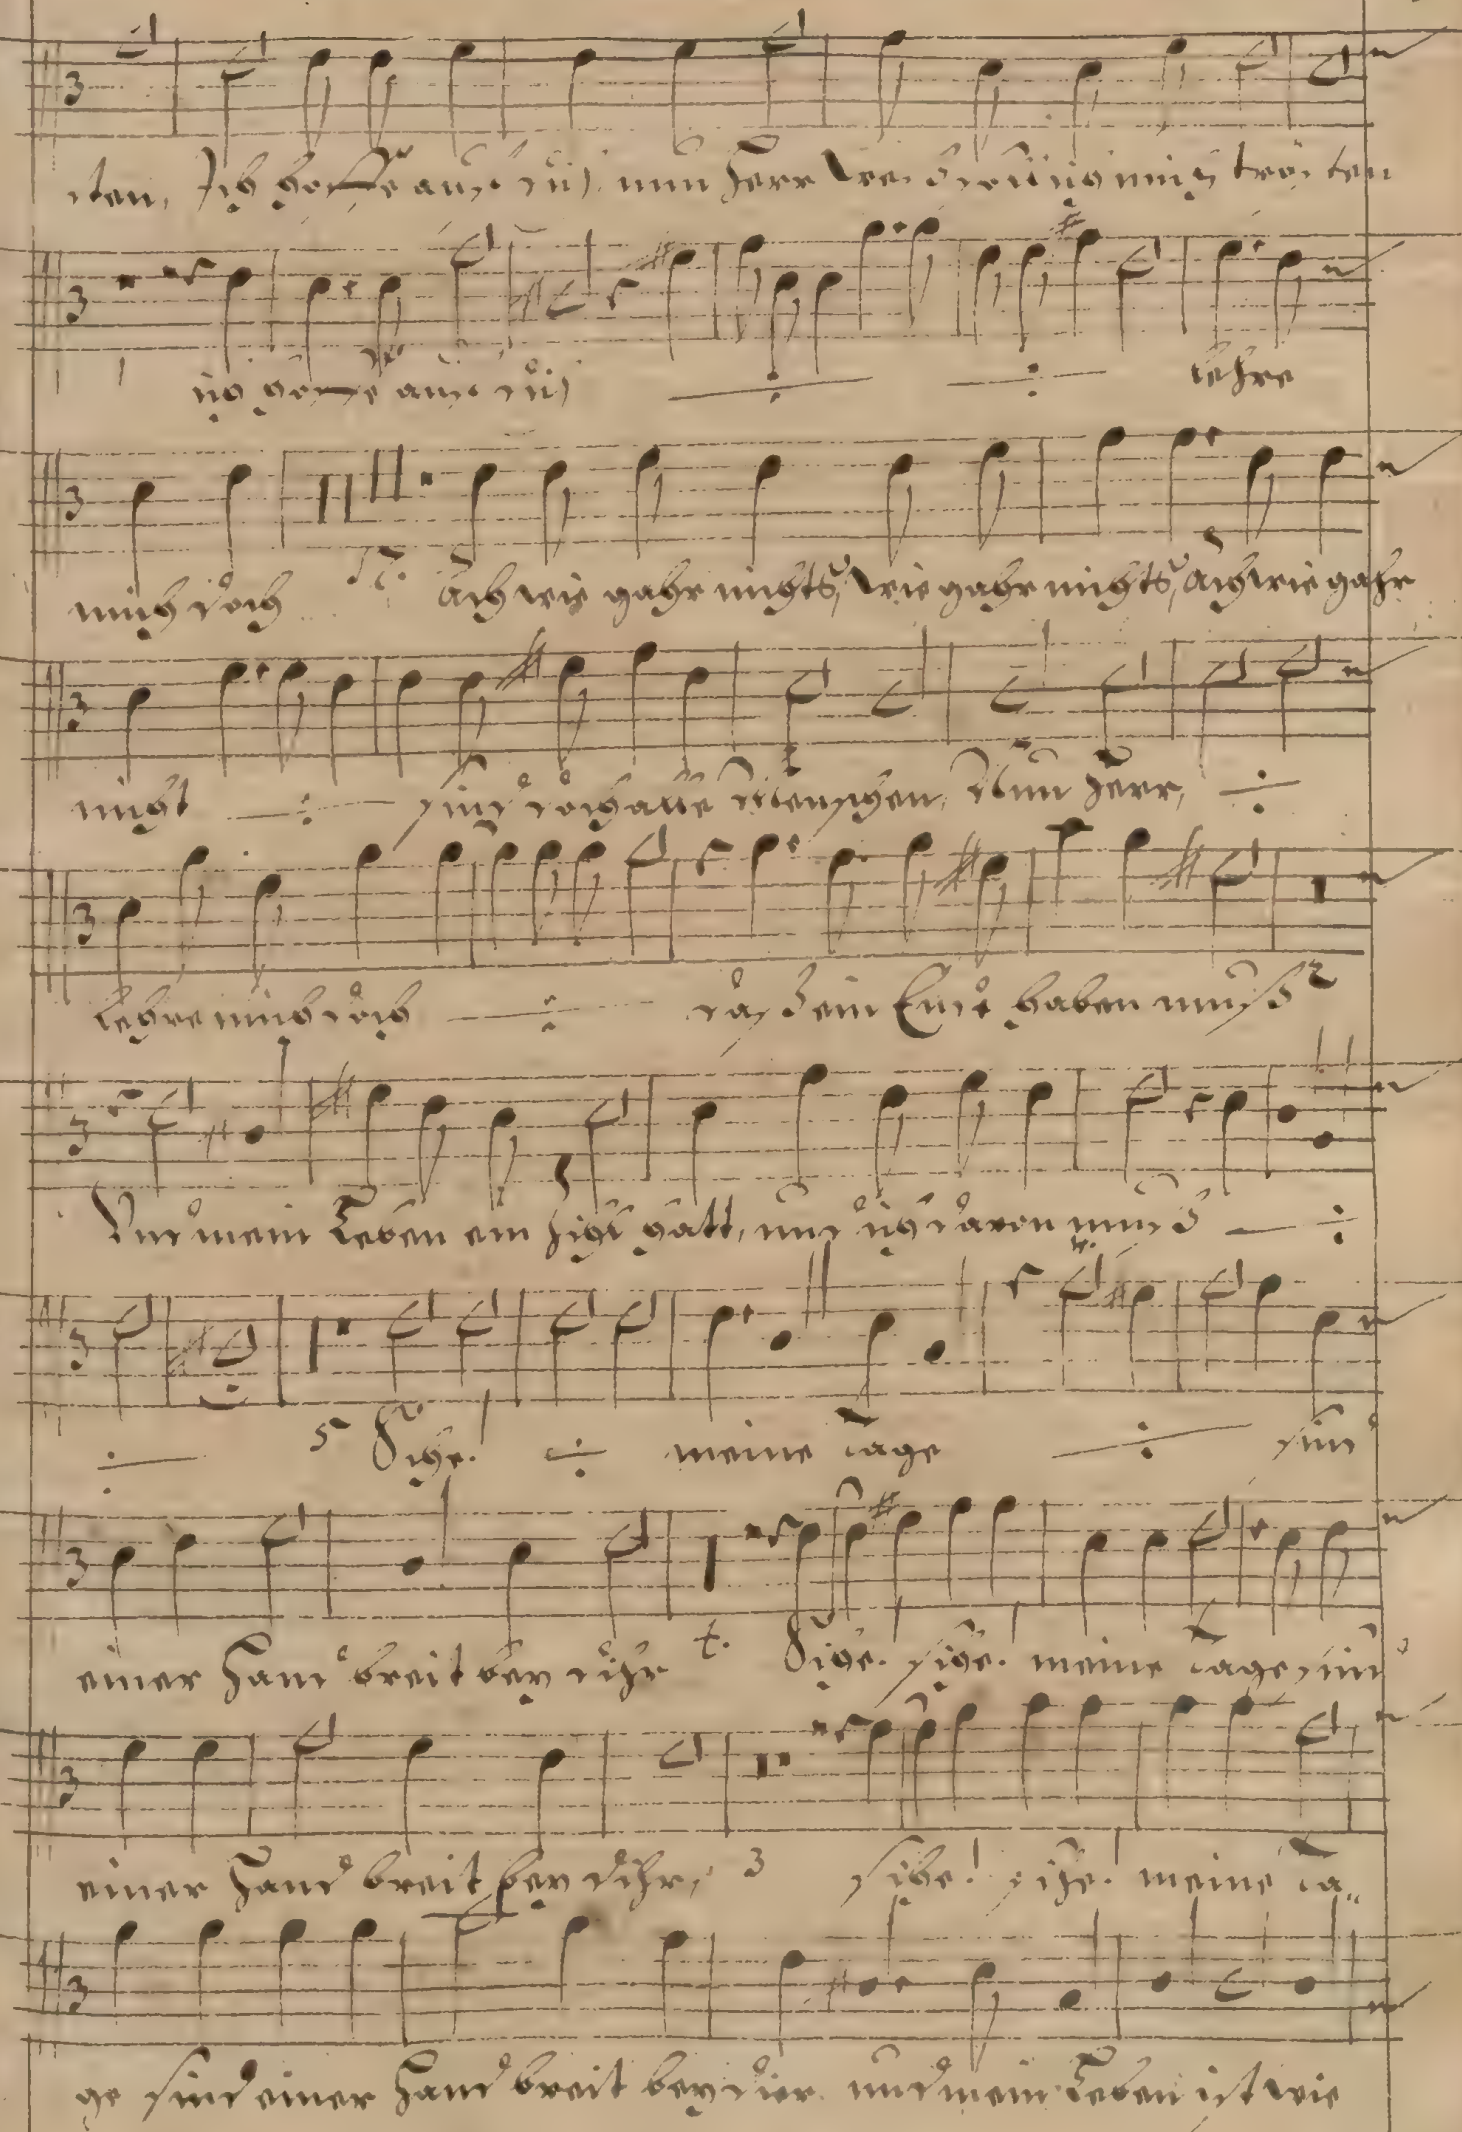 sten, Ich hoffe auf dich, nun Herr weß soll ich mich trösten
ich hoffe auf dich ÷ ÷ lehre
mich doch 17. Ach wie gahr nichts, wie gahr nichts, ach wie gahr
nicht ÷ sind doch alle Menschen, Nun Herr, ÷
lehre mich doch ÷ daß ein Ende haben muß
Und mein Leben ein Ziehl hatt, und ich davon muß ÷
÷ 5 Sihe. ÷ meine Tage ÷ sind
einer Hand breit bey dihr t. Sihe. sihe. meine Tage sind
einer Hand breit bey dihr, 3 sihe! sihe! meine Ta„
ge sind einer Hand breit bey dier und mein Leben ist wie